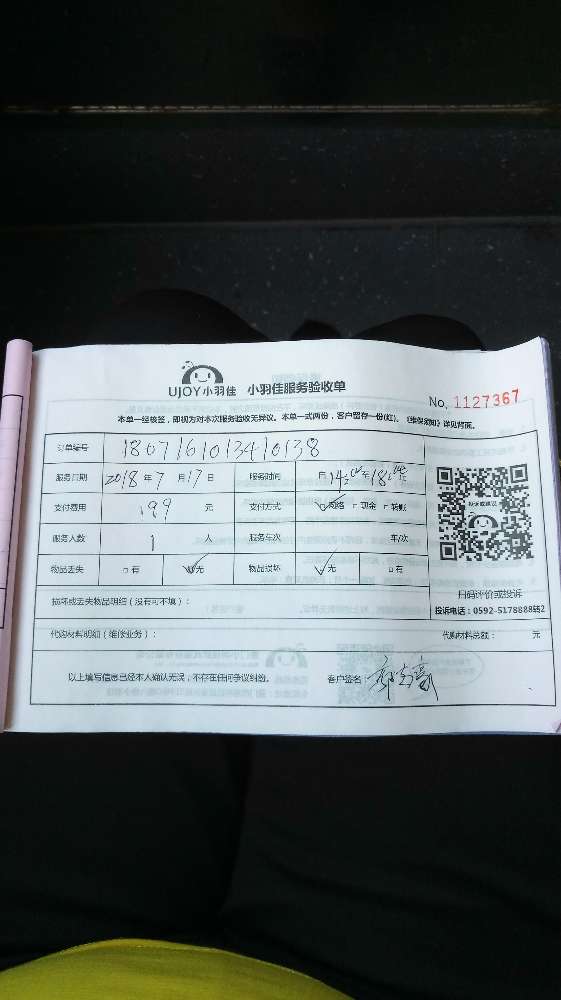 UJOY小羽佳 小羽佳服务验收单
No. 1127367
本单一经核签，即视为对本次服务验收无异议。本单一式两份，客户留存一份(红)。《维保须知》详见背面。
订单编号 180716101341038
服务日期 2018年7月17日 服务时间 自14:00至18:00
支付费用 199 元 支付方式 网络 现金 转账
服务人数 1 人 服务车次 车/次
物品丢失 有 无 物品损坏 无 有
投诉或建议
扫码评价或投诉
投诉电话：0592-5178888转2
损坏或丢失物品明细（没有可不填）：
代购材料明细（维修业务）： 代购材料总额： 元
以上填写信息已经本人确认无误，不存在任何争议纠纷。 客户签名：